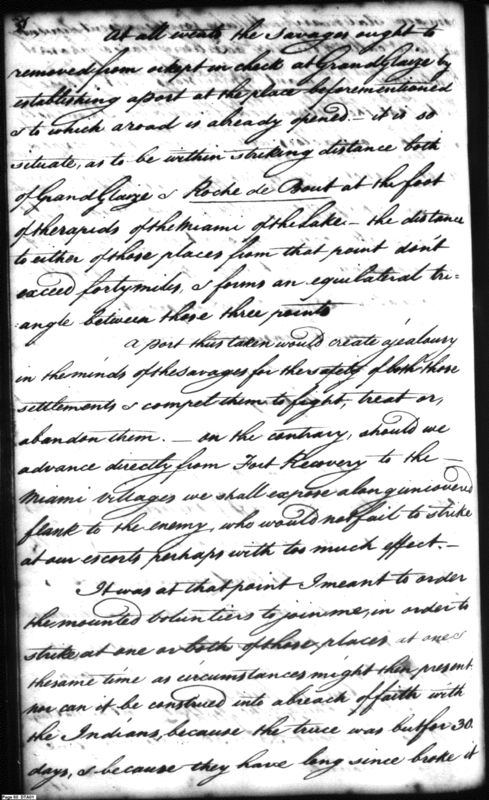 At all events the Savages ought to
removed from or kept in check at Grand Glaize by
establishing a post at the place beforementioned
& to which a road is already opened — it is so
situate, as to be within striking distance both
of Grand Glaize & Roche de Bout at the foot
of the rapids of the Miami of the Lake — the distance
to either of those places from that point don't
exceed forty miles, & forms an equilateral tri-
angle between those three points
a post thus taken would create a jealousy
in the minds of the Savages for the safety of both those
settlements & compel them to fight, treat or,
abandon them. — on the contrary, should we
advance directly from Fort Recovery to the —
Miami villages we shall expose a long uncovered
flank to the enemy, who would not fail to strike
at our escorts perhaps with too much effect. —
It was at that point I meant to order
the mounted voluntiers to join me, in order to
strike at one or both of those places at one &
the same time as circumstances might then present
nor can it be construed into a breach of faith with
the Indians, because the truce was but for 30.
days, & because they have long since broke it